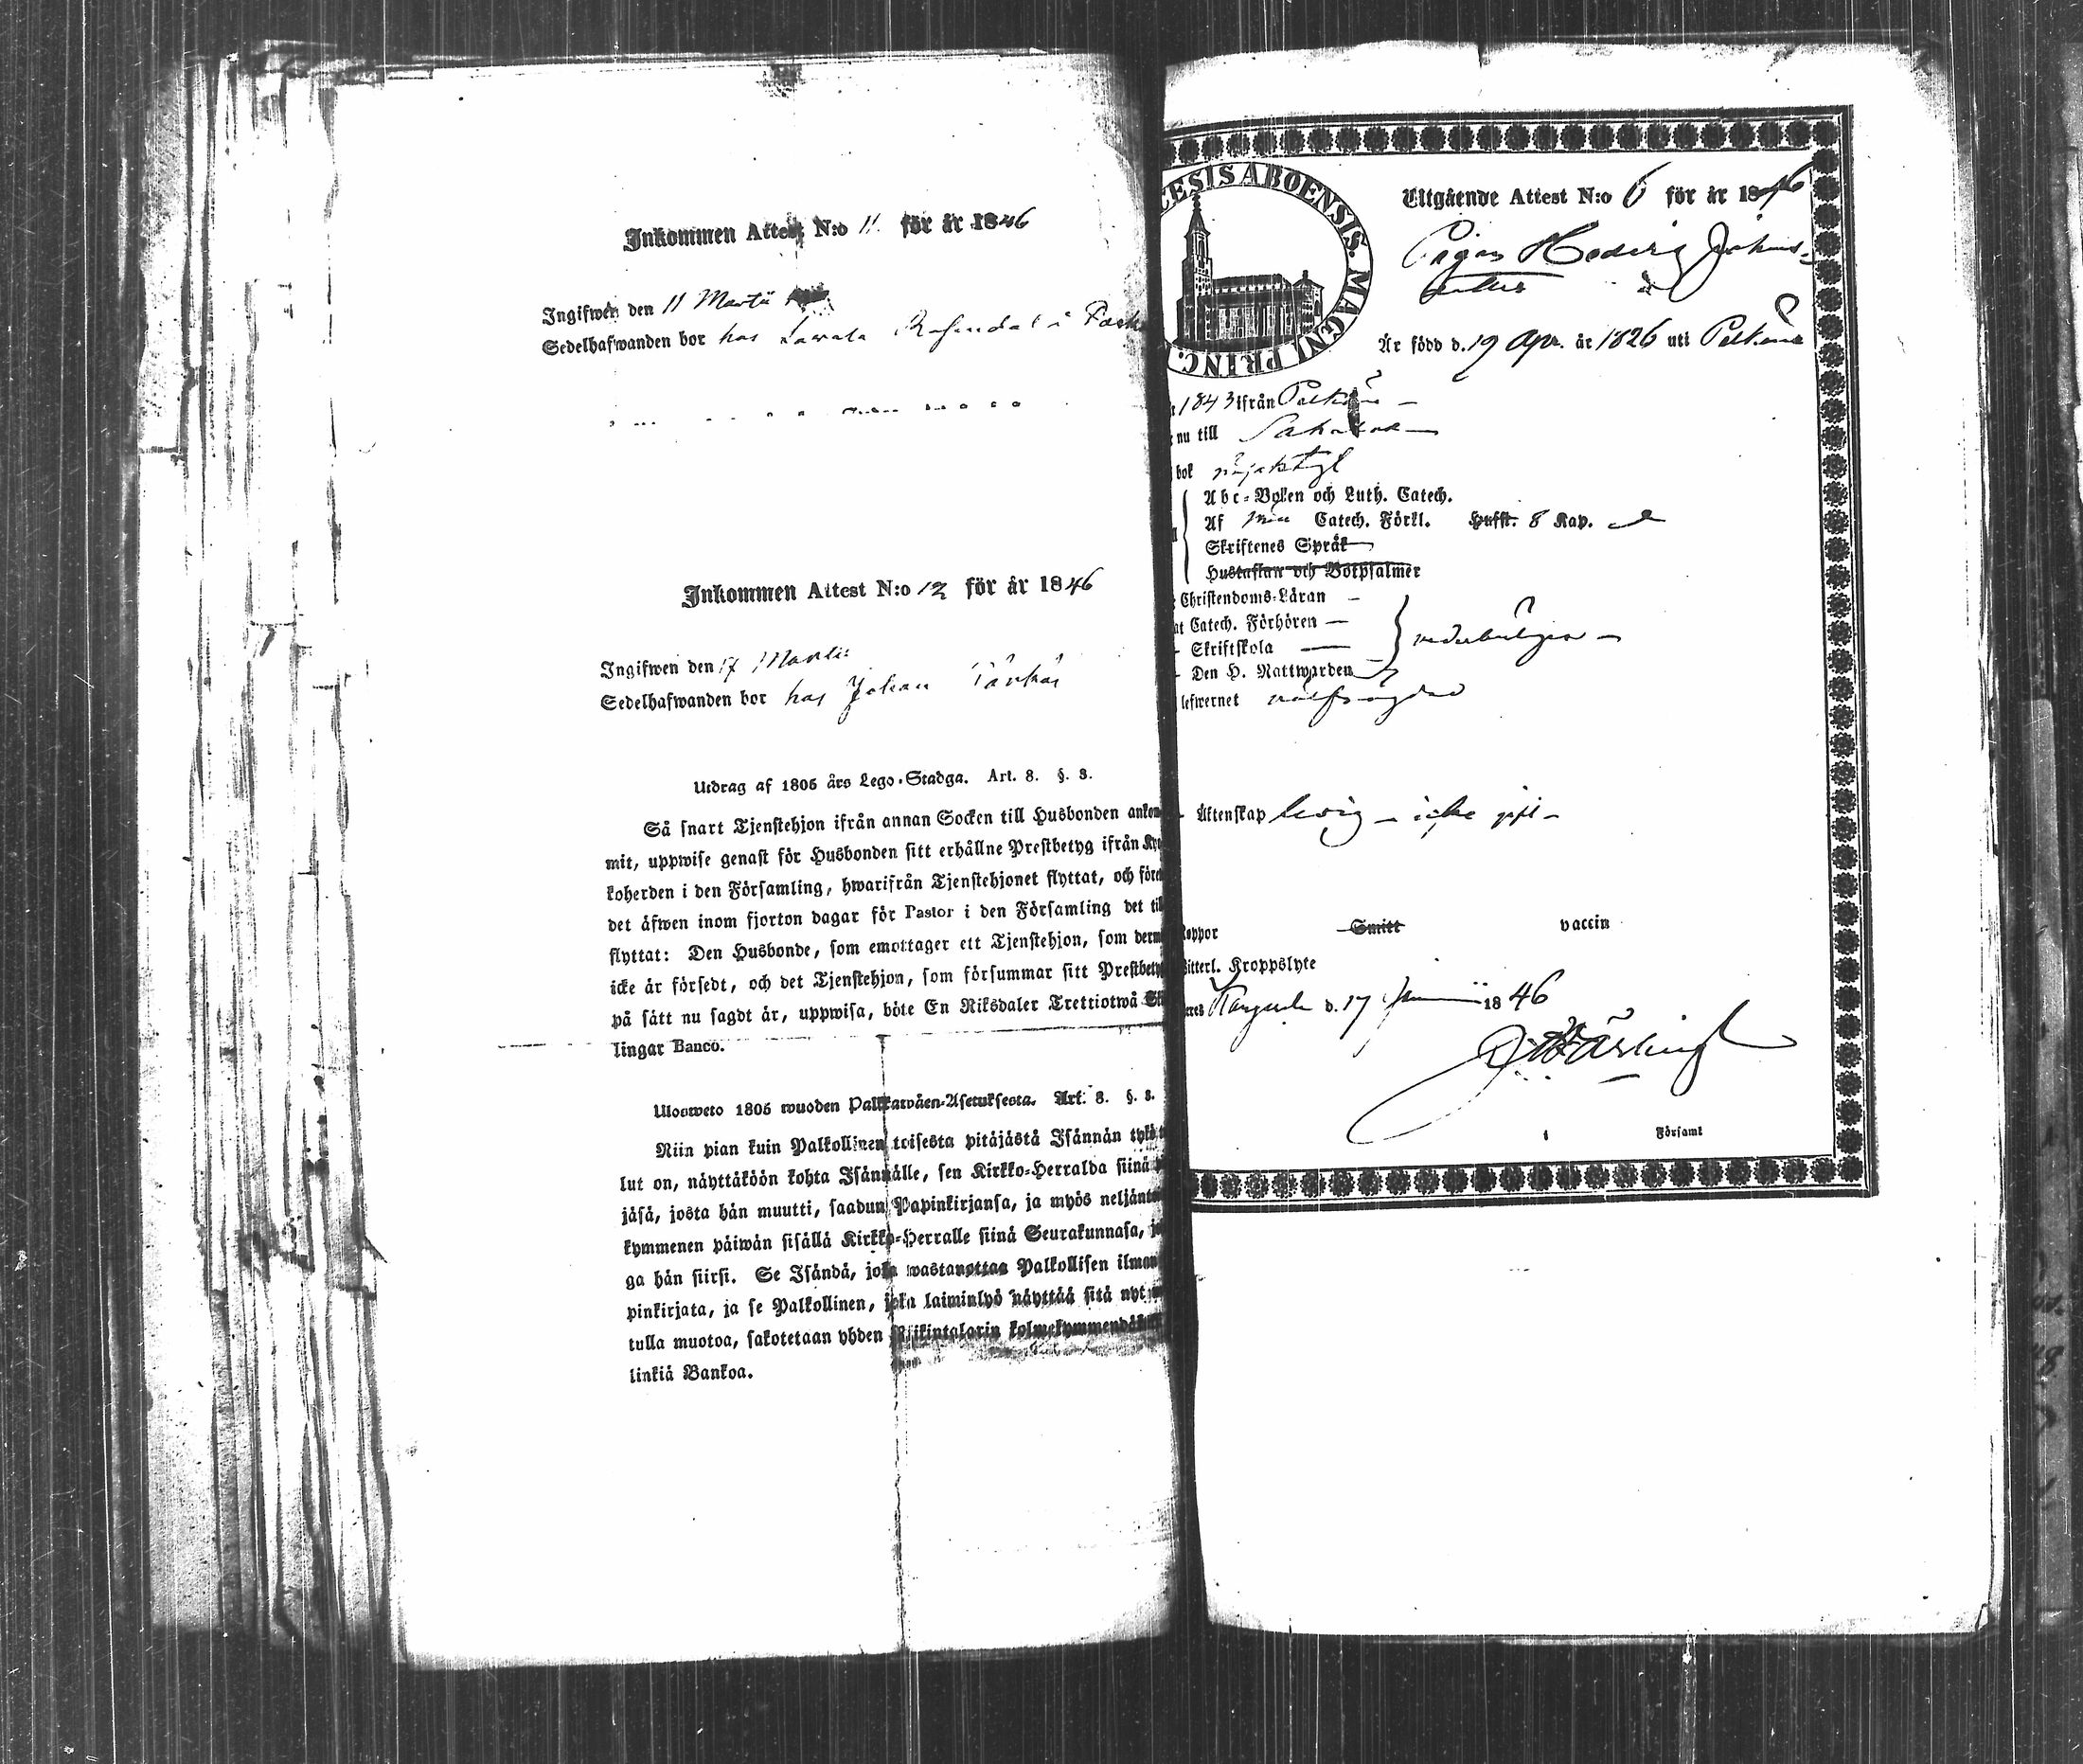 Inkommen Attest N:o 11 för år 1846
Ingifwen den 11 Martii
Sedelhafwanden bor hos
Inkommen Attest N:o 12 för år 1846
Ingifwen den 17 Martii
Sedelhafwanden bor hos Johan
Utdrag af 1805 års Lego-Stadga. Art. 8. §. 3.
Så snart Tjenstehjon ifrån annan Socken till Husbonden ankom
mit, uppwise genast för Husbonden sitt erhållne Prestbetyg ifrån Ky
koherden i den Församling, hwarifrån Tjenstehjonet flyttat, och före
det äfwen inom fjorton dagar för Pastor i den Församling det til
flyttat: Den Husbonde, som emottager ett Tjenstehjon, som derm
icke är försedt, och det Tjenstehjon, som försummar sitt Prestbety
på sätt nu sagdt är, uppwisa, böte En Riksdaler Trettiotwå Ski
lingar Banco.
Ulosweto 1805 wuoden Palkkawäen-Asetuksesta. Art. 8. §. 3.
Niin pian kuin Palkollinen toisesta pitäjästä Isännän tykö
lut on, näyttäköön kohta Isännälle, sen Kirkko-Herralda siinä
jäsä, josta hän muutti, saadun Papinkirjansa, ja myös neljänto
kymmenen päiwän sisällä Kirkko-Herralle siinä Seurakunnasa, jo
ga hän siirsi. Se Isändä, joka wastanottaa Palkollisen ilman
pinkirjata, ja se Palkollinen, joka laiminlyö näyttää sitä nyt
tulla muotoa, sakotetaan yhden Riikintalarin kolmekymmendä
linkiä Bankoa.
CESIS ABOENSIS. MAGNI PRINC.
Utgående Attest N:o 6 för år 1846
Pigan Hedvig Johans-
dotter
Är född d. 19 Apr. år 1826 uti Pelkäne
1843 ifrån Pelkäne
nu till
bok nöjaktigt
Abc-Boken och Luth. Catech.
Af Catech. Förkl. Hufst. 8 Kap.
Skriftenes Språk
Hustaflan och Botpsalmer
Christendoms-Läran
Catech. Förhören
Skriftskola
Den H. Nattwarden
vederbörligen
lefwernet välfrägdad
Äktenskap ledig – icke gift –
koppor Smitt vaccin
itterl. Kroppslyte
d. 17 1846
Församl